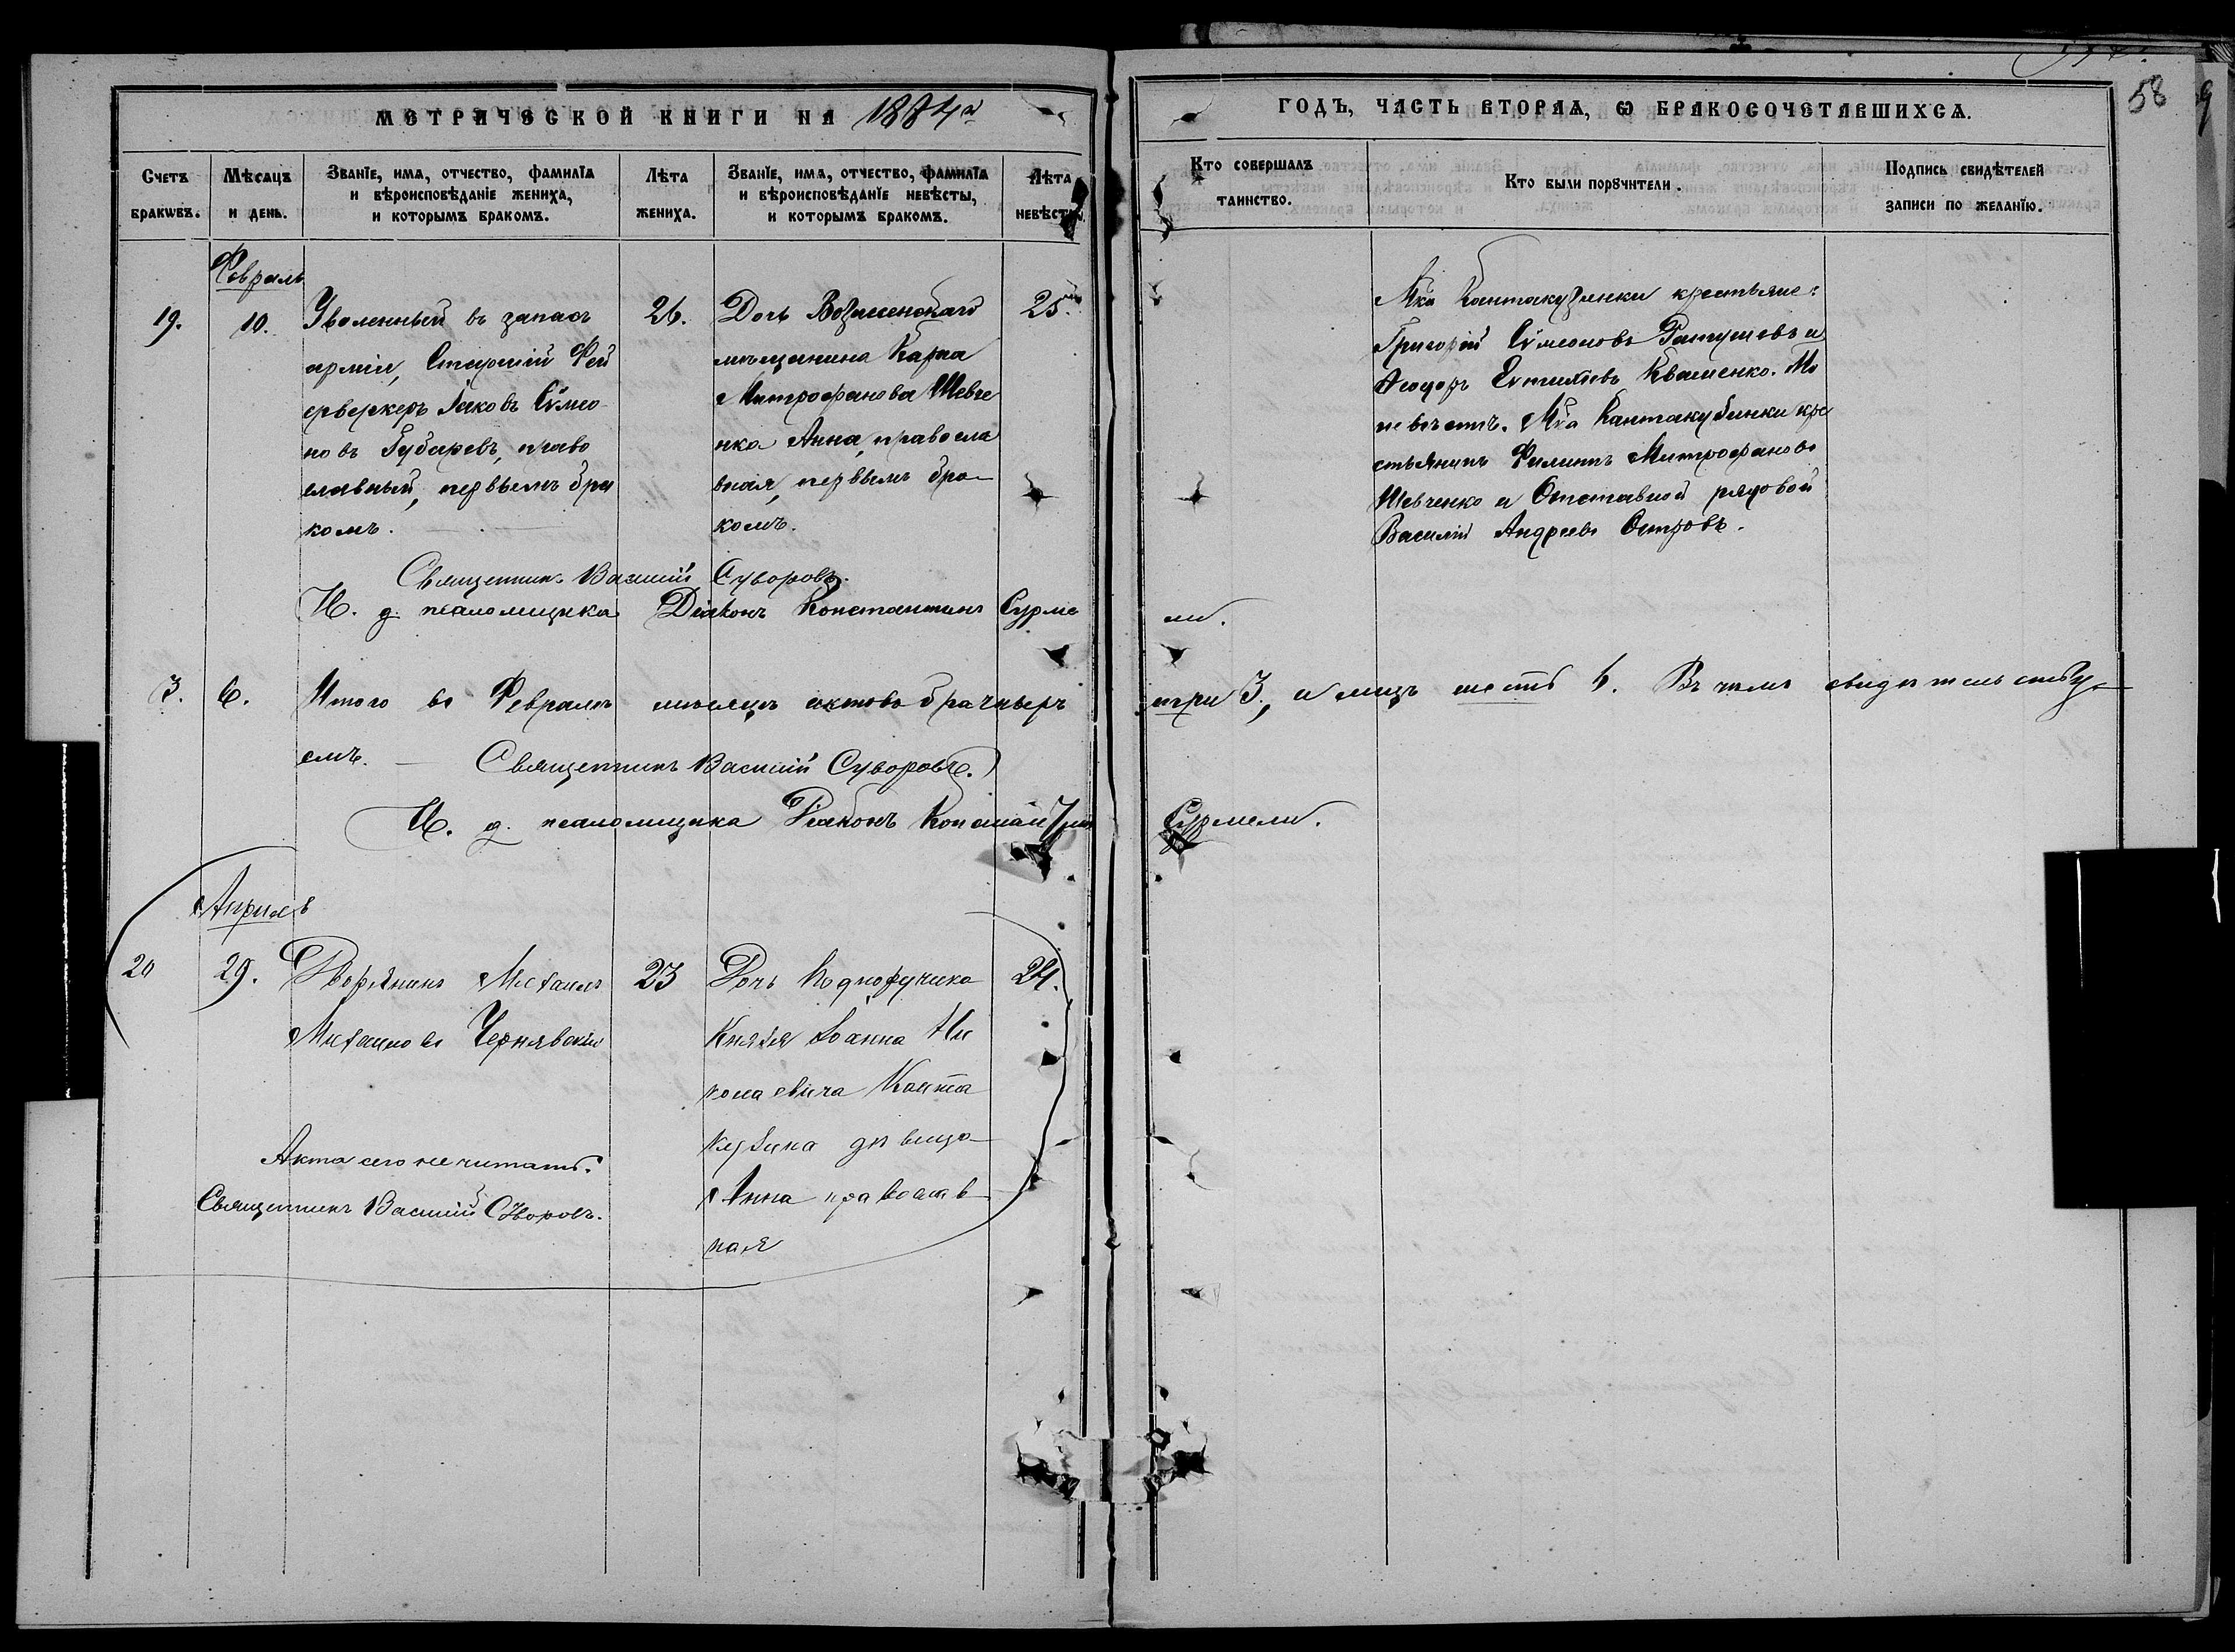 58
МЕТРИЧЕСКОЙ КНИГИ НА 1884 г
ГОДЪ, ЧАСТЬ ВТОРАѦ, Ѡ БРАКОСОЧЕТАВШИХСѦ.
Счетъ браковъ.
Мѣсѧцъ и день.
Званїе, имѧ, отчество, фамилїѧ
и вѣроисповѣданїе жениха,
и которымъ бракомъ.
Лѣта
жениха.
Званїе, имѧ, отчество, фамилїѧ
и вѣроисповѣданїе невѣсты,
и которымъ бракомъ.
Лѣта
невѣсты.
Кто совершалъ
таинство.
Кто были порꙋчители.
Подпись свидѣтелей
записи по желанїю.
Февраль
19.
10.
Уволенный въ запасъ
арміи, Старшій Фей
ерверкеръ Іаковъ Сѵмео
новъ Губаревъ, право
славный, первымъ бра
комъ.
26.
Дочь Вознесенскаго
мѣщанина Карпа
Митрофанова Шевче
нка Анна, правосла
вная, первымъ бра
комъ.
25.
Мка Кантакузинки крестьяне:
Григорій Сѵмеоновъ и
Ѳеодоръ Евтихіевъ Квашенко. По
невѣстѣ. Мка Кантакузинки кре
стьянинъ Филиппъ Митрофановъ
Шевченко и Отставной рядовой
Василій Андреевъ Островъ.
Священникъ Василій Суворовъ.
И. д. псаломщика Діаконъ Константинъ Сурме
ли.
3. 6. Итого въ Февралѣ мѣсяцѣ актовъ брачныхъ три 3, а лицъ шесть 6. Въ чемъ свидѣтельству
емъ. Священникъ Василій Суворовъ.
И. д. псаломщика Діаконъ Константинъ Сурмели.
Апрель
20
29.
Дворянинъ Михаилъ
Михаиловъ Чернявскій
23
Дочь Подпоручика
Князя Іоанна Ни
колаевича Канта
кузина дѣвица
Анна православ
ная
24.
Акта сего не читать.
Священникъ Василій Суворовъ.